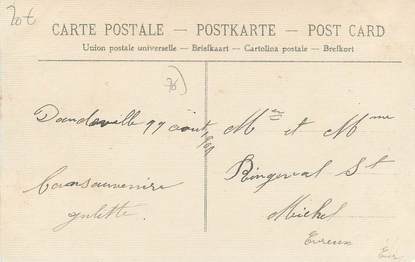 20t
CARTE POSTALE — POSTKARTE — POST CARD
Union postale universelle — Briefkaart — Cartolina postale — Brefkort
76
Dandeville 99 août
Bonsouvenire
juliette.
Mr et Mme
St
Michel
Evreux
Eur